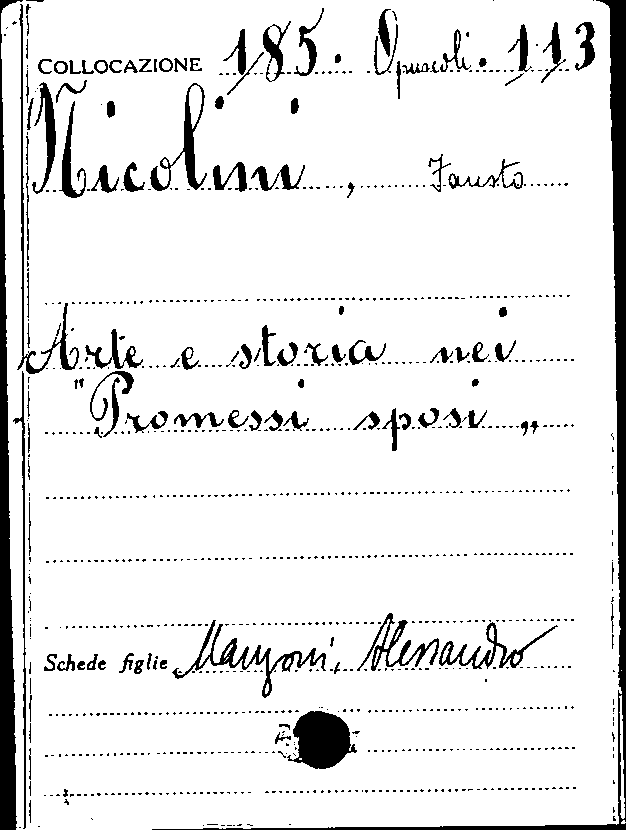 COLLOCAZIONE 185. Opuscoli. 113
Nicolini, Fausto
Arte e storia nei
"Promessi sposi„
Schede figlie Manzoni, Alessandro